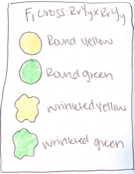 F₁ cross: RrYy x RrYy
Round yellow
Round green
wrinkled yellow
wrinkled green